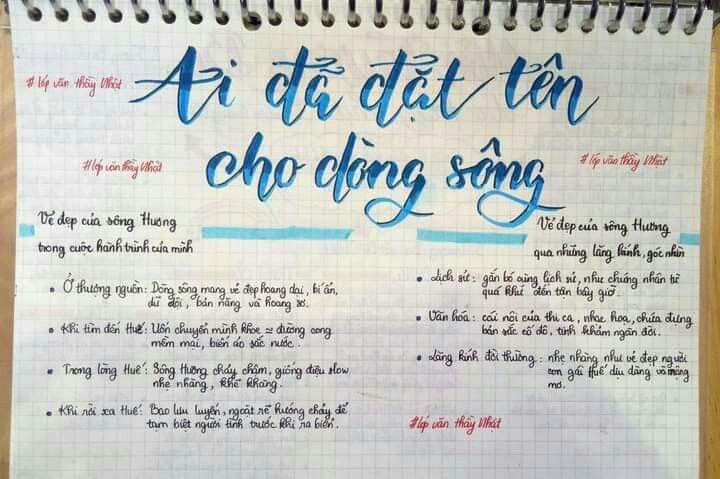 #lớp văn thầy Nhật
Ai đã đặt tên
cho dòng sông
#lớp văn thầy Nhật
#lớp văn thầy Nhật
Vẻ đẹp của sông Hương
trong cuộc hành trình của mình
• Ở thượng nguồn: Dòng sông mang vẻ đẹp hoang dại, bí ẩn,
dữ dội, bản năng và hoang sơ.
• Khi tìm đến Huế: Uốn chuyển mình khoe = đường cong
mềm mại, biến ảo sắc nước.
• Trong lòng Huế: Sông Hương chảy chậm, giống điệu slow
nhẹ nhàng, khẽ khàng.
• Khi rời xa Huế: Bao lưu luyến, ngoặt rẽ hướng chảy để
tạm biệt người tình trước khi ra biển.
Vẻ đẹp của sông Hương
qua những lăng kính, góc nhìn
• Lịch sử: gắn bó cùng lịch sử, như chứng nhân từ
quá khứ đến tận bây giờ.
• Văn hóa: cái nôi của thi ca, nhạc họa, chứa đựng
bản sắc cố đô, tính khảm ngàn đời.
• Lăng kính đời thường: nhẹ nhàng như vẻ đẹp người
con gái Huế dịu dàng và mộng
mơ.
#lớp văn thầy Nhật